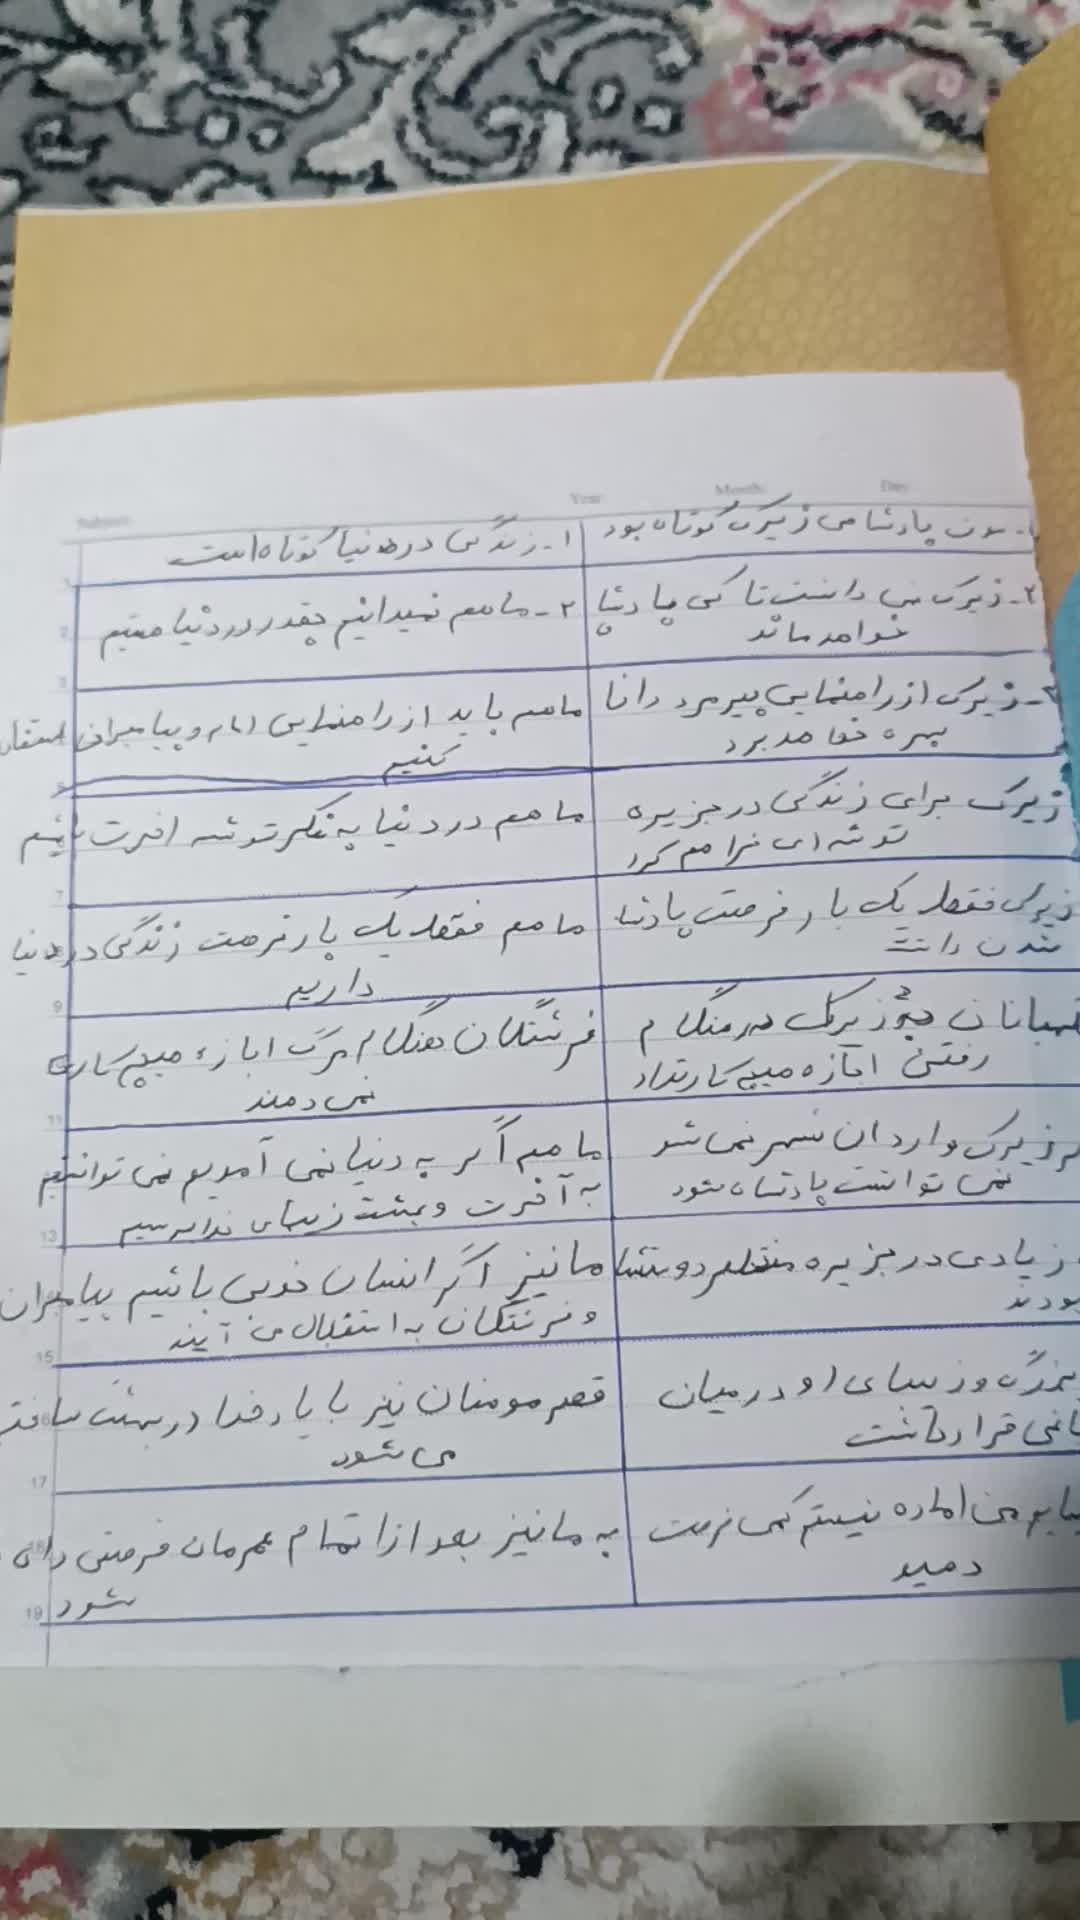 Subject:
Year:
Month:
Day:
پادشاهی زیرک کوتاه بود
۱- زندگی در دنیا کوتاه است
۲- زیرک نمی دانست تا کی پادشاه
خواهد ماند
۲- ما هم نمیدانیم چقدر در دنیا هستیم
۳- زیرک از راهنمایی پیرمرد دانا
بهره خواهد برد
ما هم باید از راهنمایی امام و پیامبران
کنیم
زیرک برای زندگی در جزیره
توشه ای فراهم کرد
ما هم در دنیا به فکر توشه اخرت باشیم
زیرک فقط یک بار فرصت پادشاه
شدن داشت
ما هم فقط یک بار فرصت زندگی در دنیا
داریم
نگهبانان زیرک هنگام
رفتن اجازه هیچ کار نداد
فرشتگان هنگام مرگ اجازه هیچ کاری
نمی دهند
زیرک وارد ان شهر نمی شد
نمی توانست پادشاه شود
ما هم اگر به دنیا نمی آمدیم نمی توانستیم
به آخرت و بهشت زیبای خدا برسیم
زیادی در جزیره منتظر
بودند
ما نیز اگر انسان خوبی باشیم پیامبران
و فرشتگان به استقبال می آیند
بزرگ و زیبای او در میان
قرار داشت
قصر مومنان نیز با یاد خدا در بهشت ساخته
می شود
من اماده نیستم کمی فرصت
دهید
به ما نیز بعد از اتمام عمرمان فرصتی
شود
1
2
3
5
7
9
11
13
15
16
17
18
19